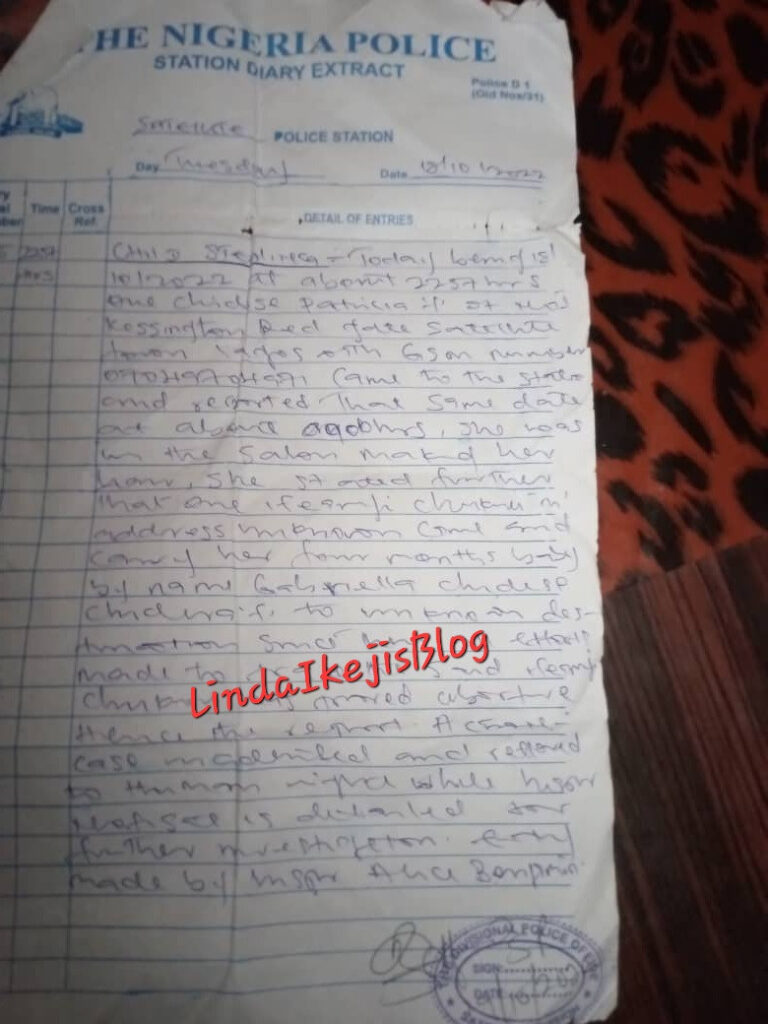 THE NIGERIA POLICE
STATION DIARY EXTRACT
Police D 1
(Old Nos/31)
Satellite POLICE STATION
Day Tuesday Date 18/10/2022
Time Cross Ref. DETAIL OF ENTRIES
2257 CHILD Stealing = Today being 18/
hrs 10/2022 at about 2257hrs
one Chidise Patricia 'f' of
Kessington Red gate Satellite
town Lagos with Gsm number
came to the station
and reported that same date
at about hrs, she was
in the salon making her
hair, she stated further
that one Ifeanyi Chukwu 'm'
address unknown came and
carry her four months baby
by name Gabriella Chidise
'f' to unknown des-
tination since then efforts
made to and Ifeanyi
proved abortive
Hence the report. A
case and reffered
to Human right while
is detailed for
further investigation. Entry
made by Inspr Alice
LindaIkejisBlog
DIVISIONAL POLICE OFFICER
SIGN
DATE